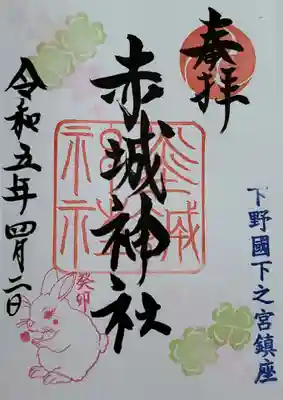 奉拝
下野國下之宮鎮座
赤城神社
赤城神社
癸卯
令和五年四月二日